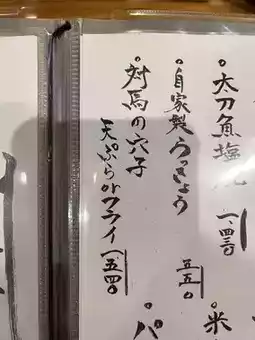 。太刀魚塩 一、四三〇
。自家製らっきょう 五五〇
。対馬の穴子
天ぷらorフライ 一、五四〇
。米
。パ